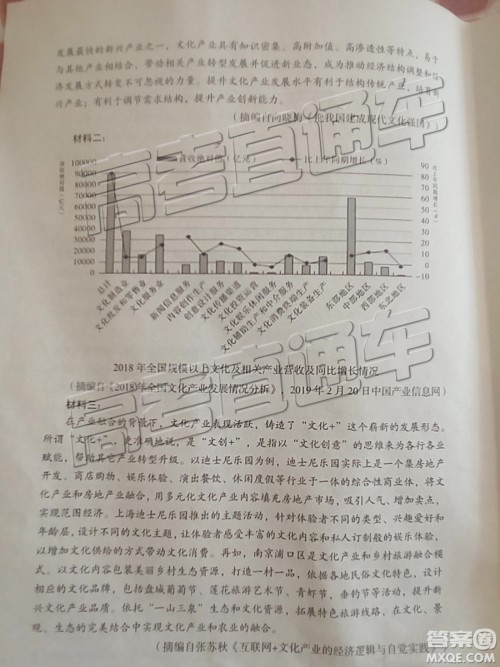 发展最快的新兴产业之一，文化产业具有知识密集、高附加值、高渗透性等特点，易于
与其他产业相结合，带动相关产业转型发展并促进新业态，成为推动经济结构调整和经
济发展方式转变不可忽视的力量。提升文化产业发展水平有利于结构传统产业，培育新
兴产业；有利于调节需求结构，提升产业创新能力。
材料二：
100000
90000
80000
70000
60000
50000
40000
30000
20000
10000
0
90
80
70
60
50
40
30
20
10
0
-10
总计
文化制造业
文化批发和零售业
文化服务业
新闻信息服务
内容创作生产
创意设计服务
文化传播渠道
文化投资运营
文化娱乐休闲服务
文化辅助生产和中介服务
文化消费终端生产
文化装备生产
东部地区
中部地区
西部地区
东北地区
2018 年全国规模以上文化及相关产业营收及同比增长情况
（摘编自《2018年全国文化产业发展情况分析》，2019 年 2 月 20 日中国产业信息网）
材料三：
在产业融合的背景下，文化产业表现活跃，铸造了“文化+”这个崭新的发展形态。
所谓“文化+”，更准确地说，是“文创+”，是指以“文化创意”的思维来为各行各业
赋能，帮助其它产业转型升级。以迪士尼乐园为例，迪士尼乐园实际上是一个集房地产
开发、商店购物、娱乐体验、演出餐饮、休闲度假等行业于一体的综合性商业体，将文
化产业和房地产业融合，用多元化文化产业内容填充房地产市场，吸引人气，增加卖点，
实现范围经济。上海迪士尼乐园推出的主题活动，针对体验者不同的类型、兴趣爱好和
年龄层，设计不同的文化主题，让体验者能感受丰富的文化内容和私人订制般的娱乐体验，
以增加文化供给的方式带动文化消费。再如，南京浦口区是文化产业和乡村旅游融合模
式。以文化内容包装美丽乡村生态资源，打造一村一品，依据各地民俗文化特色，设计
相应的文化品牌，包括盘城葡萄节、莲花旅游艺术节、青虾节、垂钓节等活动，提升新
兴文化产业品质。依托“一山三泉”生态和文化资源，拓展特色旅游线路，在文化、景
观、生态的完美结合中实现文化产业和农业的融合。
（摘编自张苏秋《互联网+文化产业的经济逻辑与自觉实践》）
高考直通车
高考直通车
答案圈
MXQE.COM